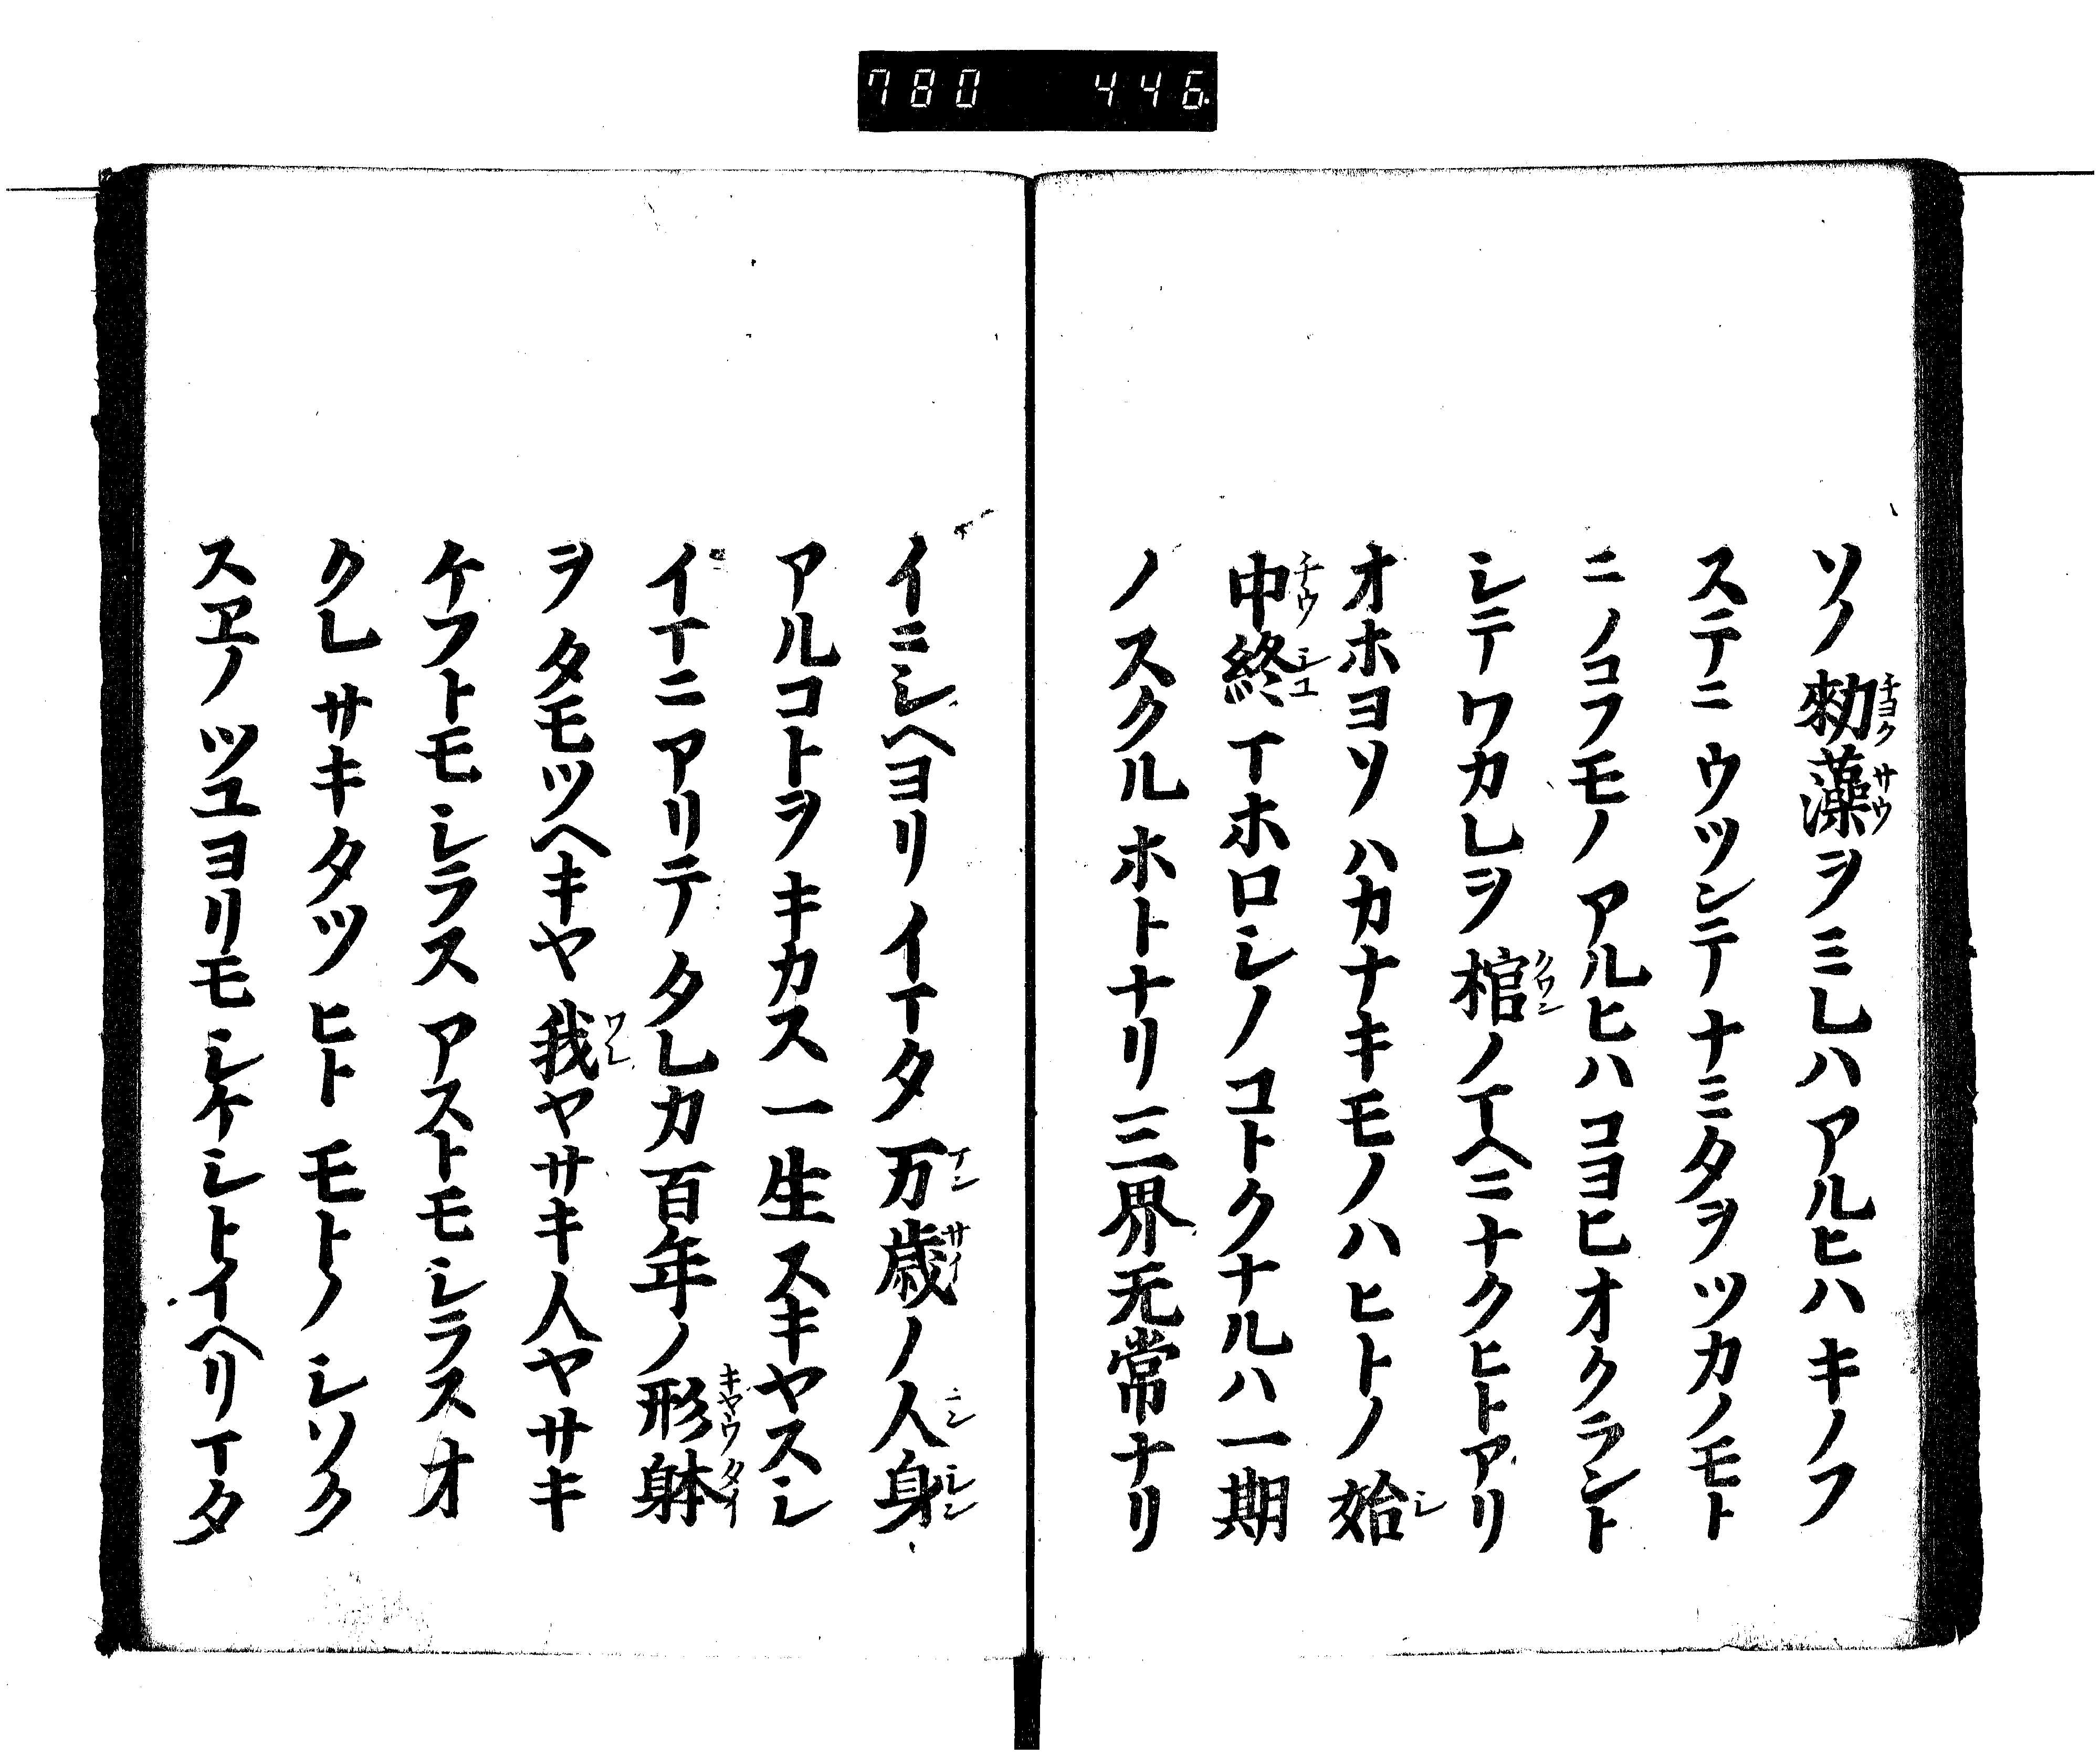 780 446
ソノ勅藻ヲミレハアルヒハキノフ
ステニウツンテナミタヲツカノモト
ニノコフモノアルヒハコヨヒオクラント
シテワカレヲ棺ノマヘニナクヒトアリ
オホヨソハカナキモノハヒトノ始
中終マホロシノコトクナルハ一期
ノスクルホトナリ三界无常ナリ
イニシヘヨリイマタ万歳ノ人身
アルコトヲキカス一生スキヤスシ
イマニアリテタレカ百年ノ形躰
ヲタモツヘキヤ我ヤサキ人ヤサキ
ケフトモシラスアストモシラスオ
クレサキタツヒトモトノシソク
スヱノツユヨリモシケシトイヘリマタ